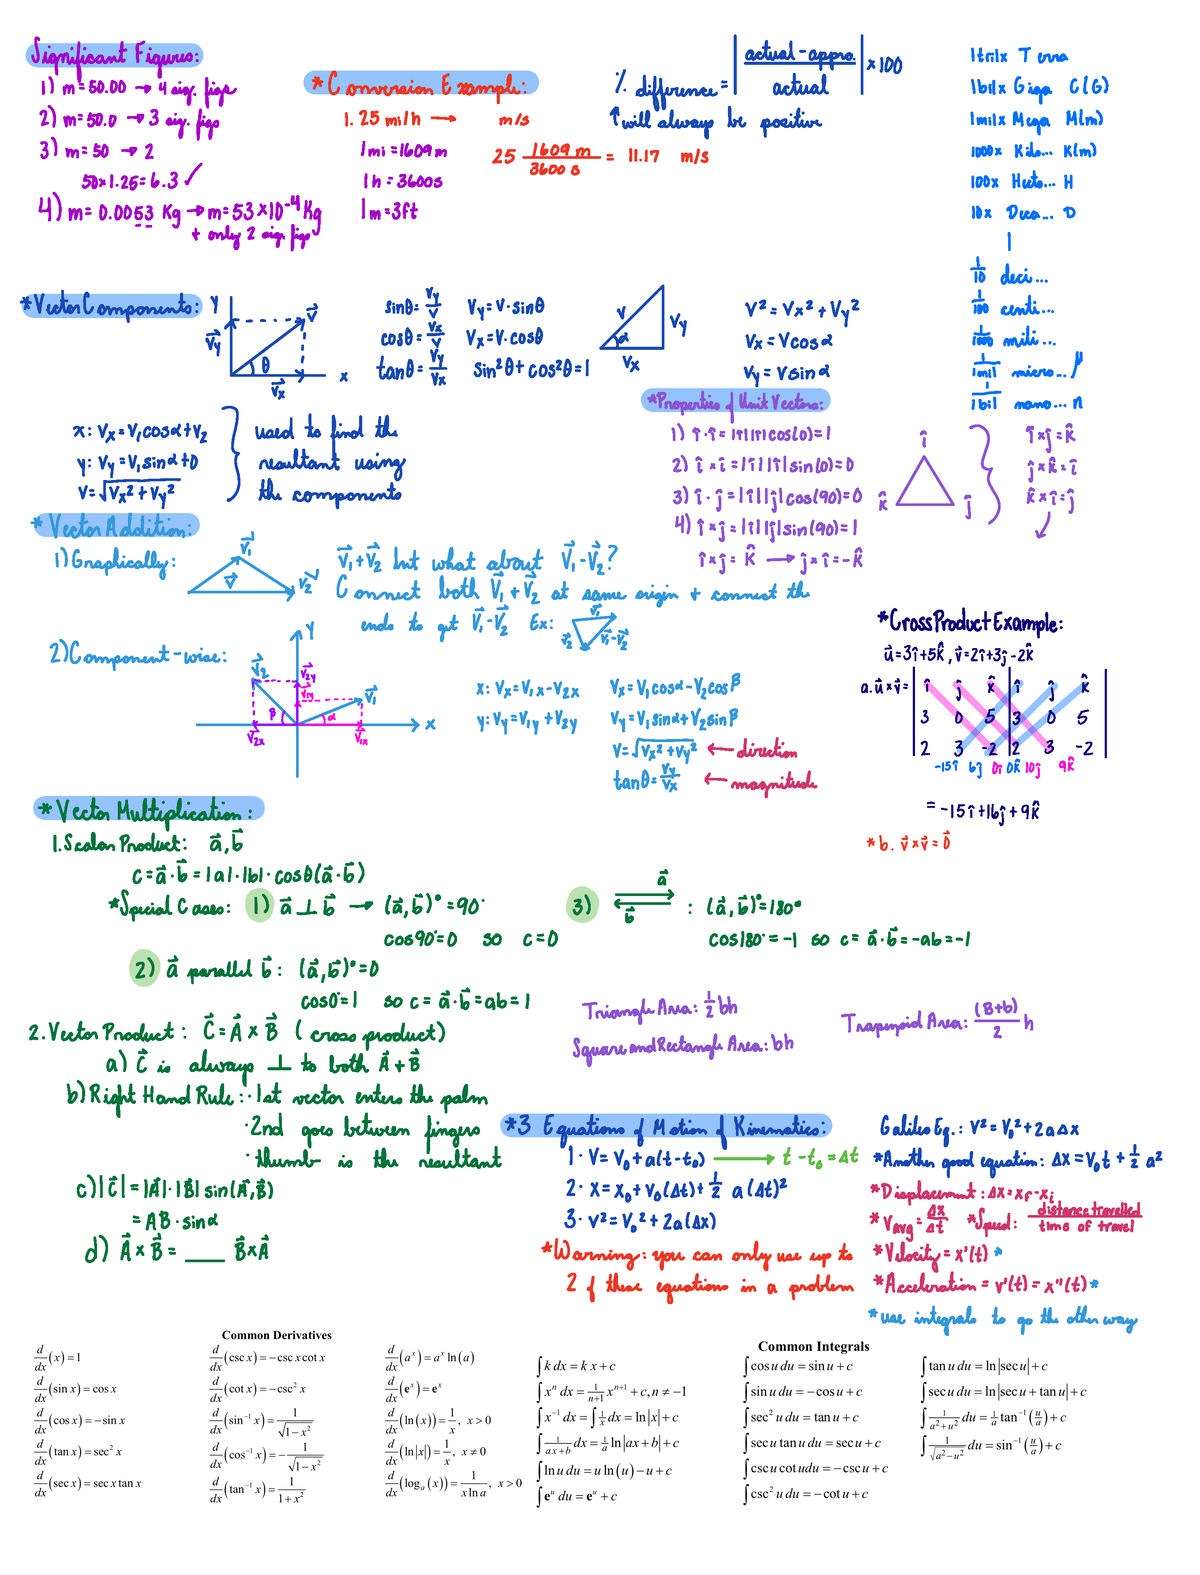 Significant Figures:
1) m=50.00 → 4 sig. figs
2) m=50.0 → 3 sig. figs
3) m=50 → 2
50×1.25=6.3 ✓
4) m= 0.0053 Kg → m=53×10⁻⁴ Kg
+ only 2 sig figs
*Conversion Example:
1. 25 mi/h → m/s
1mi=1609m
1h=3600s
1m=3ft
25 1609 m / 3600 s = 11.17 m/s
% difference = | actual-appro. / actual | × 100
↑ will always be positive
1trilx Terra
1bilx Giga C(G)
1milx Mega M(m)
1000x Kilo... K(m)
100x Hecto... H
10x Deca... D
1
1/10 deci...
1/100 centi...
1/1000 mili...
1/1mil micro... μ
1/1bil nano... n
*Vector Components:
Y
V⃗
V⃗y
θ
V⃗x
x
sinθ= Vy/V Vy=V·sinθ
cosθ= Vx/V Vx=V·cosθ
tanθ= Vy/Vx sin²θ+cos²θ=1
V
α
Vy
Vx
V²=Vx²+Vy²
Vx=Vcosα
Vy=Vsinα
x: Vx=V₁cosα+V₂
y: Vy=V₁sinα+0
V=√Vx²+Vy²
used to find the
resultant using
the components
*Properties of Unit Vectors:
1) î·î=|î||î|cos(0)=1
2) î×î=|î||î|sin(0)=0
3) î·ĵ=|î||ĵ|cos(90)=0
4) î×ĵ=|î||ĵ|sin(90)=1
î×ĵ=k̂ → ĵ×î=-k̂
î
k̂
ĵ
î×ĵ=k̂
ĵ×k̂=î
k̂×î=ĵ
*Vector Addition:
1) Graphically:
V⃗₁
V⃗
V⃗₂
V⃗₁+V⃗₂ but what about V⃗₁-V⃗₂?
Connect both V⃗₁+V⃗₂ at same origin + connect the
ends to get V⃗₁-V⃗₂ Ex:
V⃗₁
V⃗₂
V⃗₁-V⃗₂
2) Component-wise:
Y
V⃗₂
V⃗₂y
V⃗₁y
V⃗₁
β
α
x
V⃗₂x
V⃗₁x
x: Vx=V₁x-V₂x Vx=V₁cosα-V₂cosβ
y: Vy=V₁y+V₂y Vy=V₁sinα+V₂sinβ
V=√Vx²+Vy² ← direction
tanθ= Vy/Vx ← magnitude
*Cross Product Example:
u⃗=3î+5k̂, v⃗=2î+3ĵ-2k̂
a. u⃗×v⃗= | î ĵ k̂ | î ĵ k̂ |
3 0 5 | 3 0 5
2 3 -2 | 2 3 -2
-15î 6ĵ 0î 0k̂ 10ĵ 9k̂
= -15î+16ĵ+9k̂
*b. v⃗×v⃗=0⃗
*Vector Multiplication:
1. Scalar Product: a⃗,b⃗
c=a⃗·b⃗=|a|·|b|·cosθ(a⃗·b⃗)
*Special Cases: 1) a⃗⊥b⃗ → (a⃗,b⃗)°=90°
cos90°=0 so c=0
3) a⃗ b⃗ : (a⃗,b⃗)°=180°
cos180°=-1 so c= a⃗·b⃗=-ab=-1
2) a⃗ parallel b⃗: (a⃗,b⃗)°=0
cos0°=1 so c=a⃗·b⃗=ab=1
2. Vector Product: C⃗=A⃗×B⃗ (cross product)
a) C⃗ is always ⊥ to both A⃗+B⃗
b) Right Hand Rule: ·1st vector enters the palm
·2nd goes between fingers
·thumb is the resultant
c) |C⃗|=|A⃗|·|B⃗|sin(A⃗,B⃗)
=AB·sinα
d) A⃗×B⃗=____ B⃗×A⃗
Triangle Area: 1/2 bh
Square and Rectangle Area: bh
Trapezoid Area: (B+b)/2 h
*3 Equations of Motion of Kinematics:
1· V=V₀+a(t-t₀) → t-t₀=Δt
2· x=x₀+V₀(Δt)+1/2 a(Δt)²
3· v²=V₀²+2a(Δx)
*Warning: you can only use up to
2 of these equations in a problem
Galileo Eq.: V²=V₀²+2aΔx
*Another good equation: Δx=V₀t+1/2 a²
*Displacement: Δx=xf-xi
*Vavg= Δx/Δt *Speed: distance travelled / time of travel
*Velocity=x'(t)*
*Acceleration=v'(t)=x''(t)*
*use integrals to go the other way
Common Derivatives
d/dx (x)=1
d/dx (sin x)=cos x
d/dx (cos x)=−sin x
d/dx (tan x)=sec² x
d/dx (sec x)=sec x tan x
d/dx (csc x)=−csc x cot x
d/dx (cot x)=−csc² x
d/dx (sin⁻¹ x)=1/√1−x²
d/dx (cos⁻¹ x)=−1/√1−x²
d/dx (tan⁻¹ x)=1/1+x²
d/dx (aˣ)=aˣ ln(a)
d/dx (eˣ)=eˣ
d/dx (ln(x))=1/x, x>0
d/dx (ln|x|)=1/x, x≠0
d/dx (logₐ(x))=1/x ln a, x>0
Common Integrals
∫k dx=k x+c
∫xⁿ dx=1/n+1 xⁿ⁺¹+c, n≠−1
∫x⁻¹ dx=∫1/x dx=ln|x|+c
∫1/ax+b dx=1/a ln|ax+b|+c
∫ln u du=u ln(u)−u+c
∫eᵘ du=eᵘ+c
∫cos u du=sin u+c
∫sin u du=−cos u+c
∫sec² u du=tan u+c
∫sec u tan u du=sec u+c
∫csc u cot u du=−csc u+c
∫csc² u du=−cot u+c
∫tan u du=ln|sec u|+c
∫sec u du=ln|sec u+tan u|+c
∫1/a²+u² du=1/a tan⁻¹(u/a)+c
∫1/√a²−u² du=sin⁻¹(u/a)+c